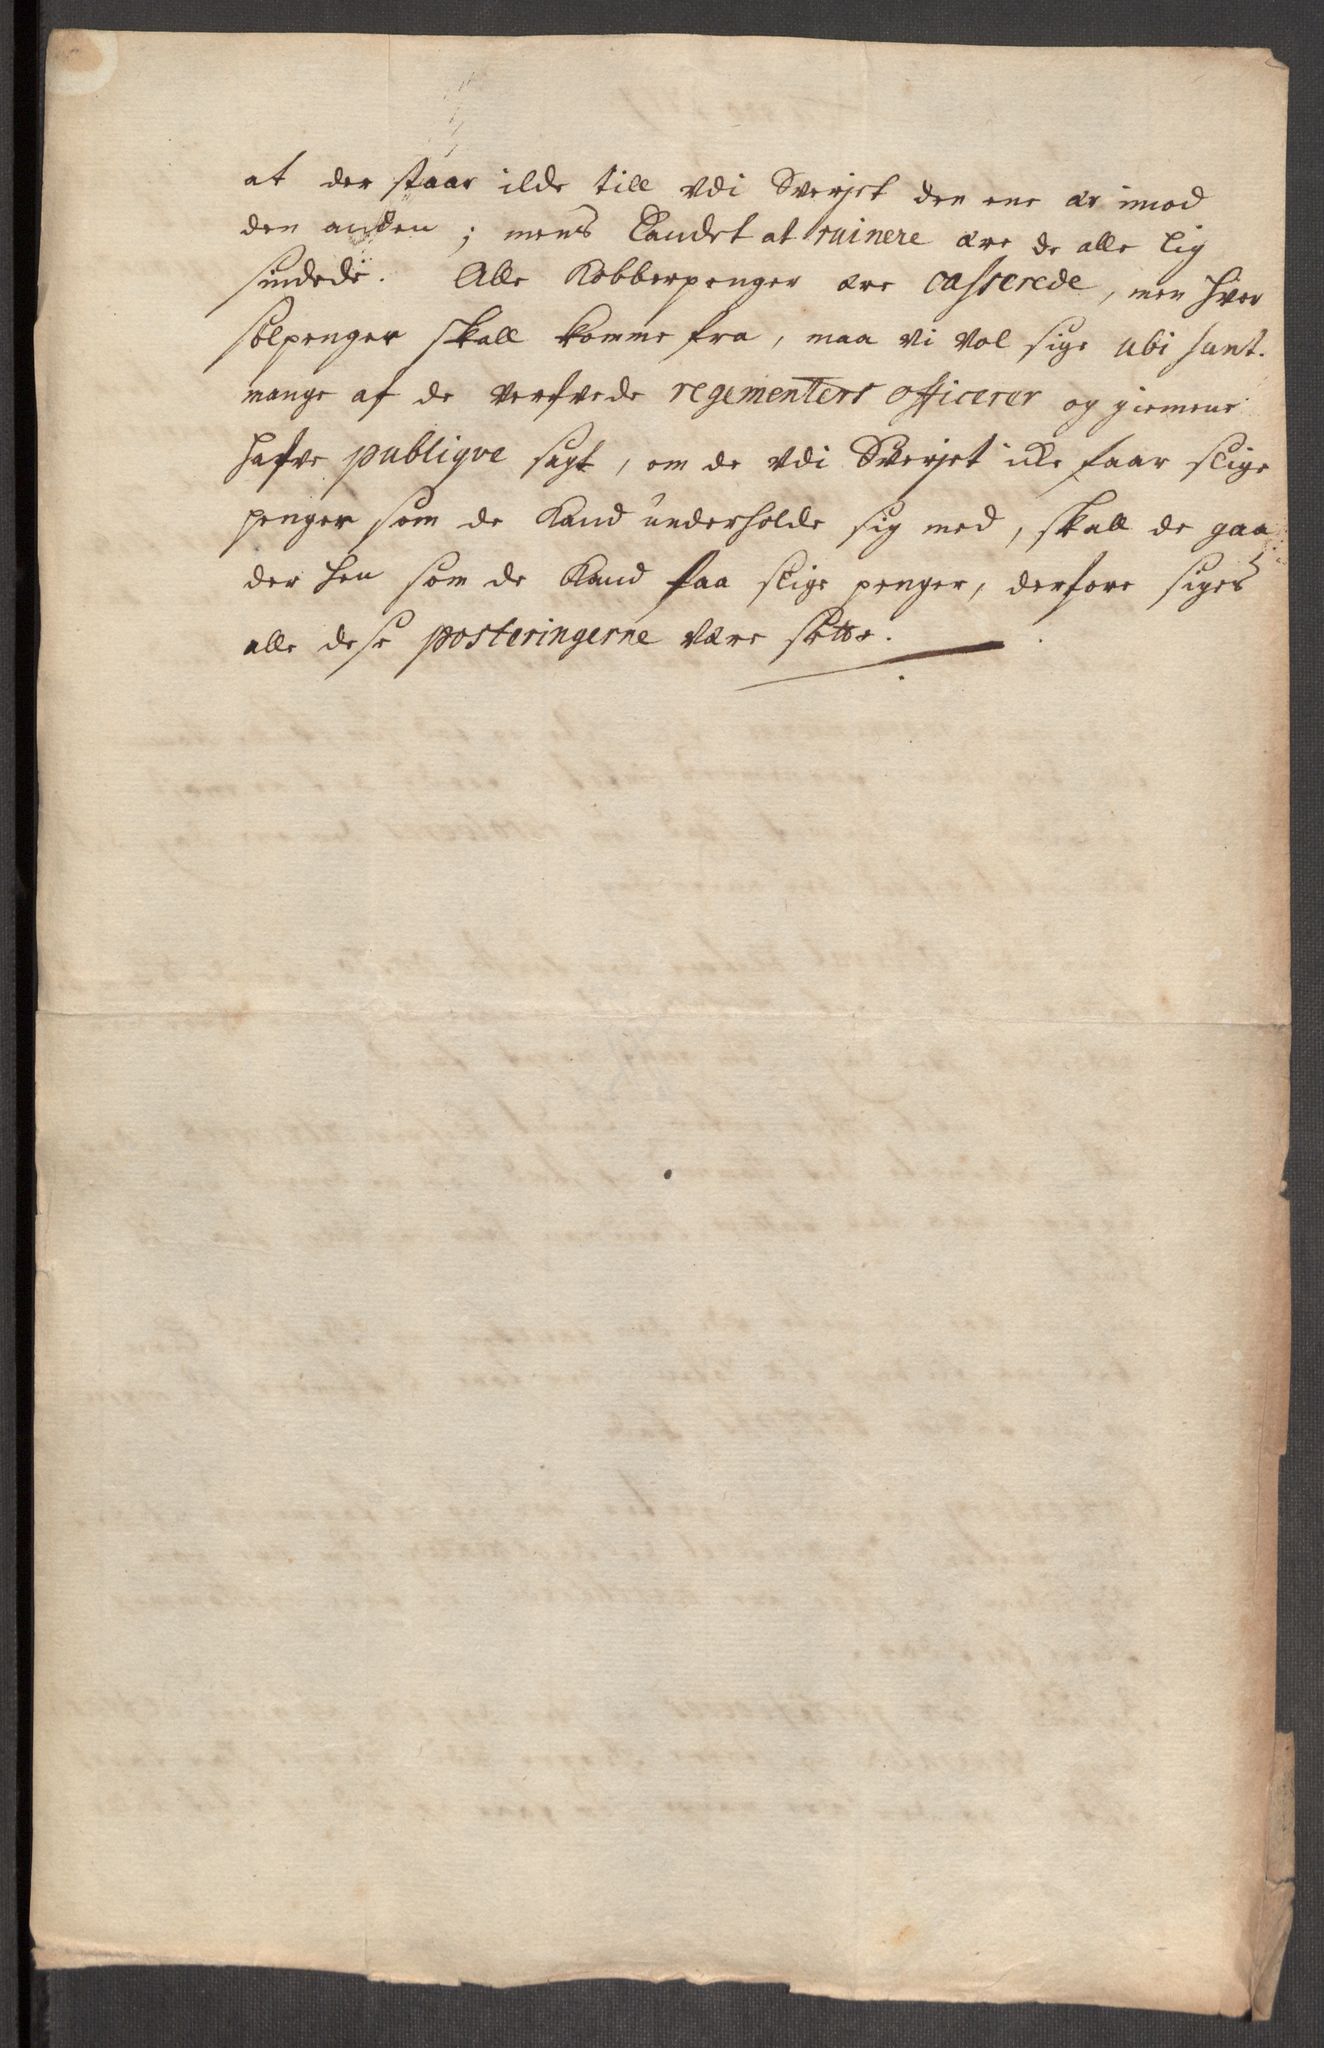 at der staar ilde till vdi Sverjet den ene ær imod
den anden ; mens Landet at ruinere ære de alle lig
sindede. Alle Kobberpenger ære casserede, men hver
sølpenger skall komme fra, maa vi vol sige ubi sunt.
mange af de verfvede regementters officerer og giemene
hafve publiqve sagt, om de vdi Sverjet icke faar slige
penger som de Kand underholde sig med, skall de gaa
der hen som de Kand faa slige penger, derfore siges
alle dese posteringerne være sette.